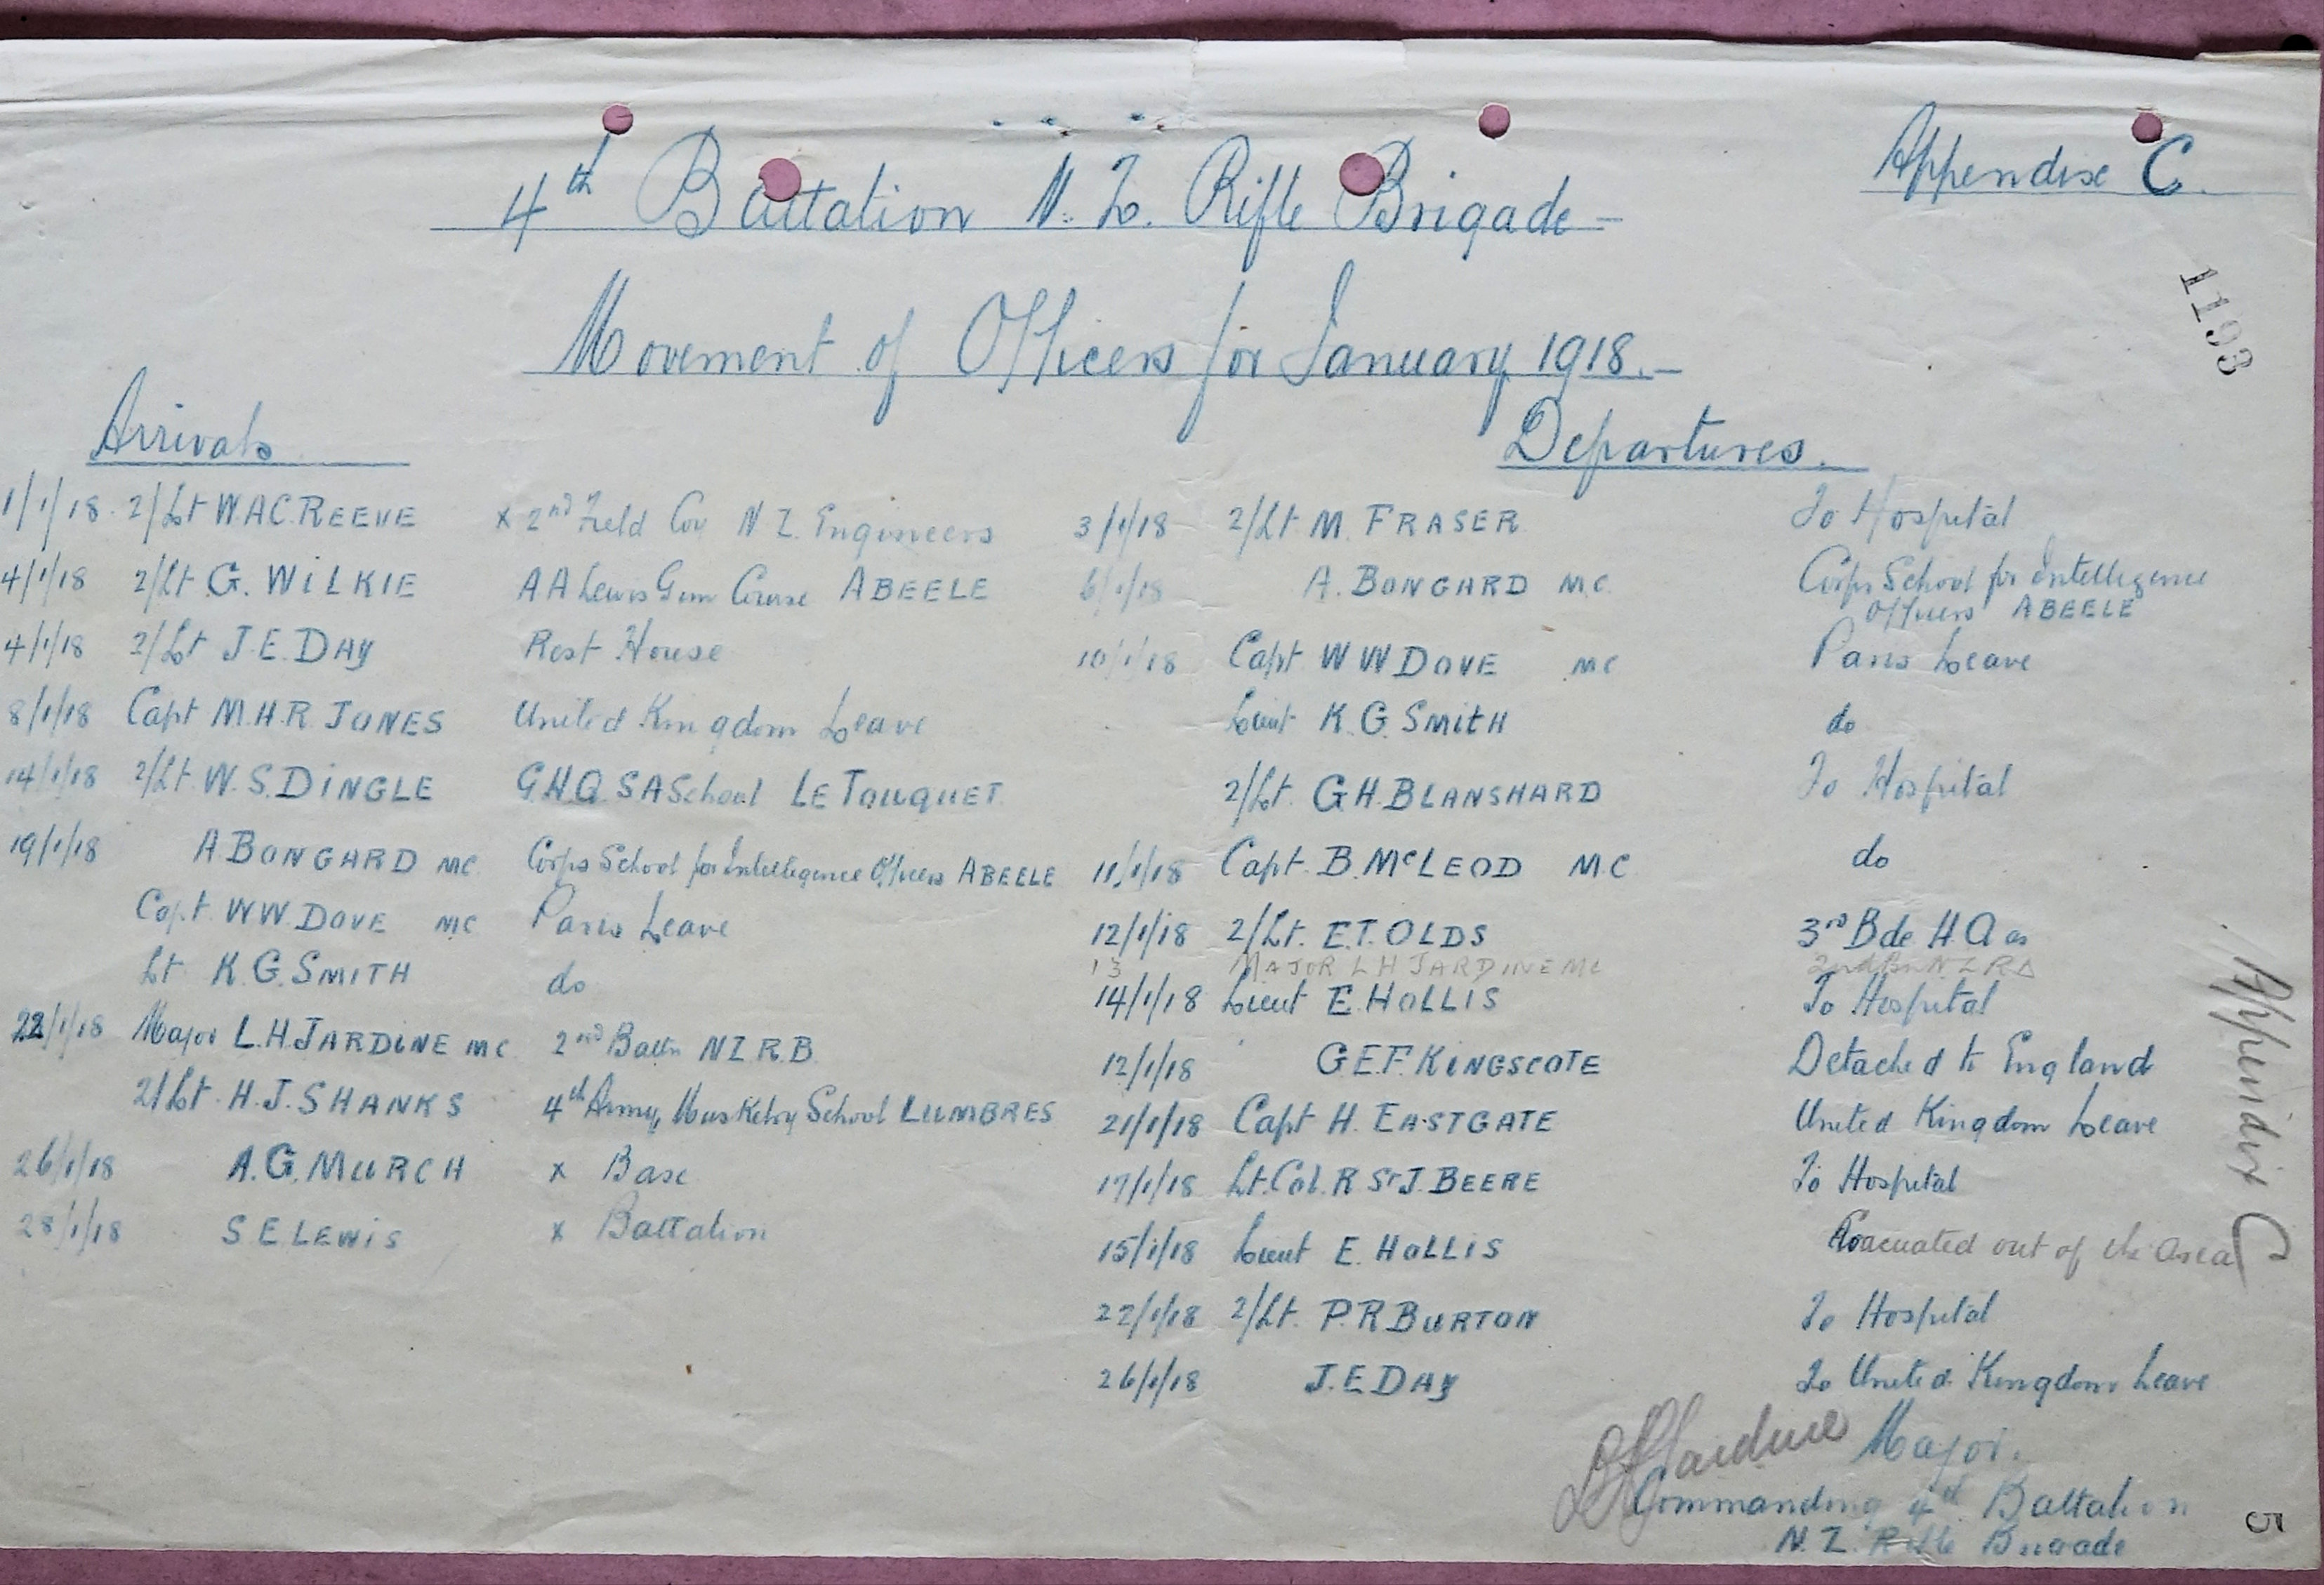 Appendix C.
4th Battalion N.Z. Rifle Brigade -
1193
Movement of Officers for January 1918. -
Arrivals
1/1/18. 2/Lt W.A.C. REEVE x 2nd Field Coy N Z. Engineers
4/1/18 2/Lt G. WILKIE A A Lewis Gun Course ABEELE
4/1/18 2/Lt J.E. DAY Rest House
8/1/18 Capt M.H.R. JONES United Kingdom Leave
14/1/18 2/Lt. W.S. DINGLE G.H.Q. S A School LE TOUQUET.
19/1/18 A BONGARD MC. Corps School for Intelligence Officers ABEELE
Capt. W.W. DOVE MC Paris Leave
Lt K.G. SMITH do
22/1/18 Major L.H. JARDINE MC 2nd Battn N Z. R.B.
2/Lt. H.J. SHANKS 4th Army Musketry School LUMBRES
26/1/18 A.G. MURCH x Base
28/1/18 S E. LEWIS x Battalion
Departures.
3/1/18 2/Lt M. FRASER To Hospital
6/1/18 A. BONGARD MC. Corps School for Intelligence
Officers ABEELE
10/1/18 Capt W W DOVE MC Paris Leave
Lieut K.G. SMITH do
2/Lt. G.H. BLANSHARD To Hospital
11/1/18 Capt. B. McLEOD MC do
12/1/18 2/Lt. E.T. OLDS 3rd Bde H Q as
13 MAJOR L H JARDINE MC 2nd Bn N Z R B
14/1/18 Lieut E. HOLLIS To Hospital
12/1/18 G.E.F. KINGSCOTE Detached to England
21/1/18 Capt H. EASTGATE United Kingdom Leave
17/1/18 Lt. Col. R. St J. BEERE To Hospital
15/1/18 Lieut E. HOLLIS Evacuated out of the Area
22/1/18 2/Lt. P.R BURTON To Hospital
26/1/18 J.E DAY To United Kingdom Leave
Appendix C
L H Jardine Major.
Commanding 4th Battalion
N. Z. Rifle Brigade
5